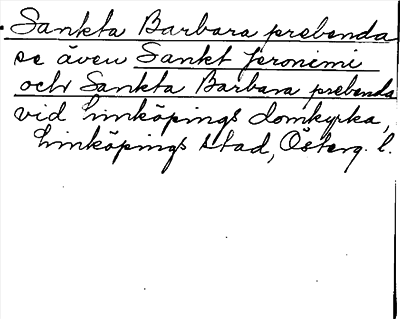 Sankta Barbara prebenda
se även Sankt Jeronimi
och Sankta Barbara prebenda
vid Linköpings domkyrka,
Linköpings stad, Österg. l.